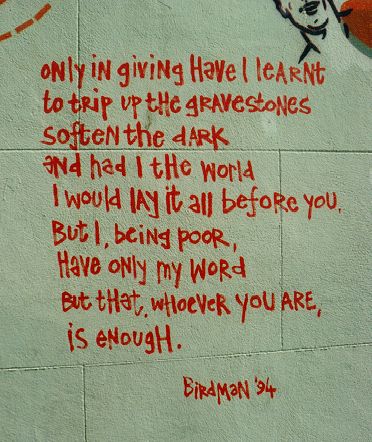 only in giving Have I leARNt
to trip up tHe gRAVestoNes
softeN the dARK
and had I tHe woRld
I would lAy it all befoRe you.
But I, beiNg pooR,
HAve oNly my woRd
But tHAt, wHoever you ARE,
is enougH.
BiRdmaN '94